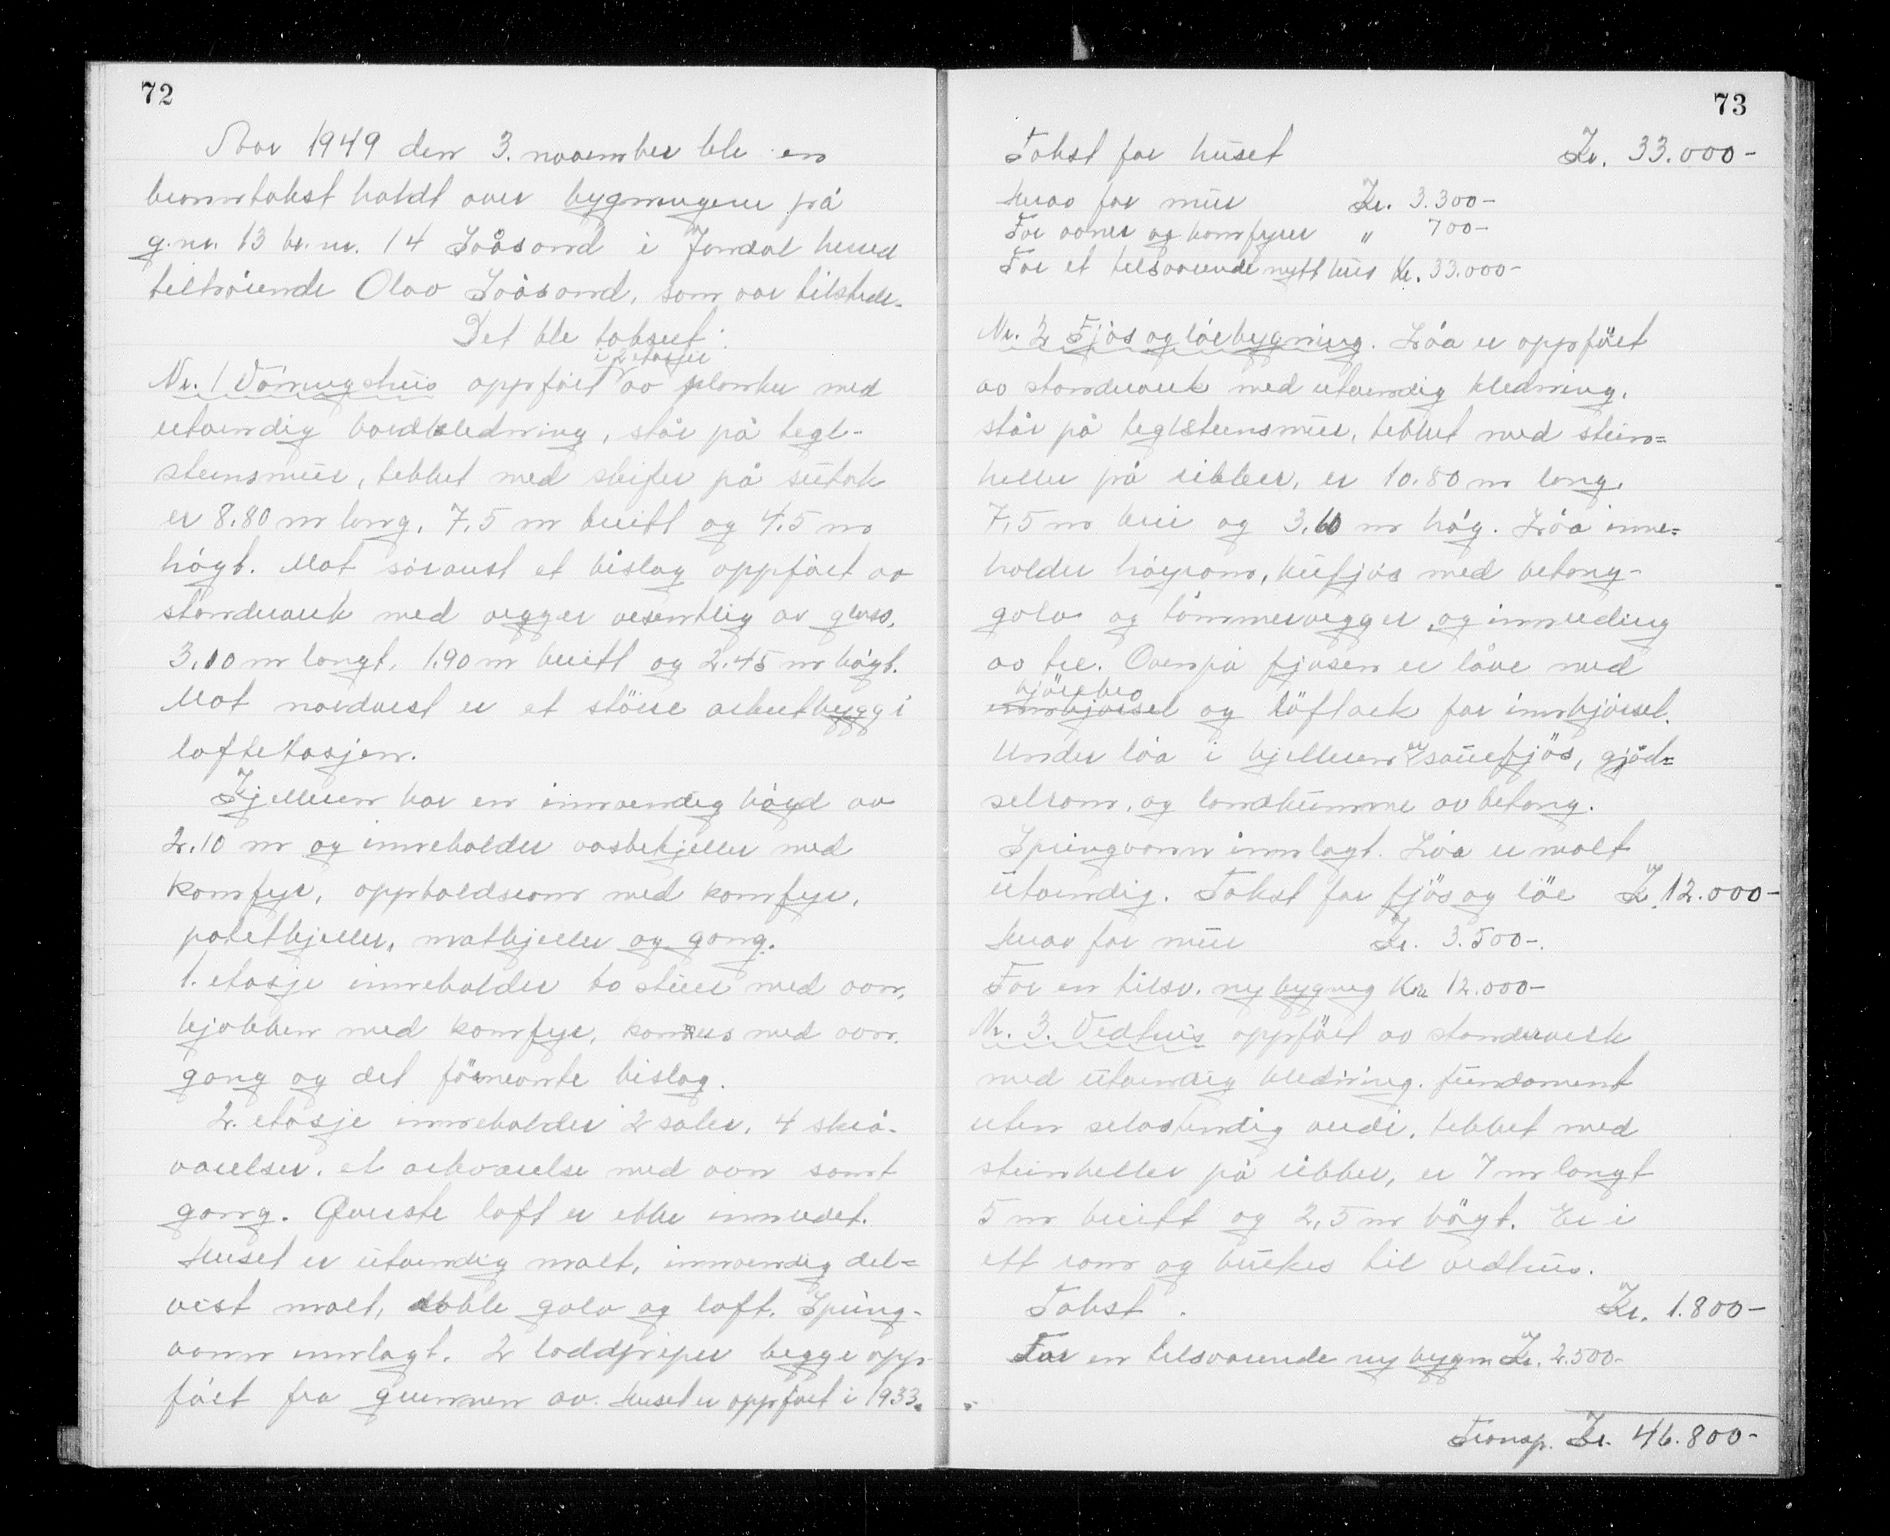 72
Aar 1949 den 3. november ble en
branntakst holdt over bygningene på
g.nr. 13 br.nr. 14 Soåsand i Jondal herred
tilhörende Olav Soåsand, som var tilstede.
Det ble taksert:
i 2 etasjer
Nr. 1 Våningshus oppfört av planker med
utvendig bordkledning, står på tegl-
steinsmur, tekket med skifer på sutak
er 8.80 m lang, 7,5 m breitt og 4,5 m
högt. Mot söraust et bislag oppfört av
standverk med vegger vesentlig av glass,
3,10 m langt, 1.90 m breitt og 2.45 m högt.
Mot nordvest er et större arkutbygg i
loftetasjen.
Kjelleren har en innvendig höyd av
2.10 m og inneholder vaskekjeller med
komfyr, oppholdsrom med komfyr,
potetkjeller, matkjeller og gang.
1. etasje inneholder to stuer med ovn,
kjökken med komfyr, kammers med ovn,
gang og det förnevnte bislag.
2. etasje inneholder 2 saler, 4 skrå-
varelser, et arkværelse med ovn samt
gang. Øverste loft er ikke innredet.
Huset er utvendig malt, innvendig del=
vist malt, doble golv og loft. Spring-
vann innlagt. 2 loddpiper begge opp-
fört fra grunnen av. Huset er oppfört i 1933.
73
Takst for huset Kr. 33.000-
Herav for mur Kr. 3.300-
For ovner og komfyrer " 700-
For et tilsvarende nytt hus Kr. 33.000-
Nr. 2 Fjös og löebygning. Löa er oppfört
av standverk med utvendig kledning,
står på teglsteinsmur, tekket med stein=
heller på ribber, er 10.80 m lang,
7,5 m brei og 3,60 m hög. Löa inne=
holder höyrom, kufjös med betong-
golv og tömmervegger, og innreding
av tre. Ovenpå fjösen er låve med
kjörebro
innkjörsel og löftark for innkjörsel.
Under löa i kjelleren er sauefjös, gjöd=
selrom, og landkumme av betong.
Springvann innlagt. Löa er malt
utvendig. Takst for fjös og löe Kr. 12.000-
Herav for mur Kr. 3.500-.
For en tilsv. ny bygning Kr. 12.000-
Nr. 3. Vedhus oppfört av standverk
med utvendig kledning. fundament
uten selvstendig verdi, tekket med
steinheller på ribber, er 7 m langt
5 m breitt og 2,5 m högt. Er i
ett rom og brukes til vedhus.
Takst. Kr. 1.800-
For en tilsvarende ny bygn. Kr. 2.500-
Transp. Kr. 46.800-